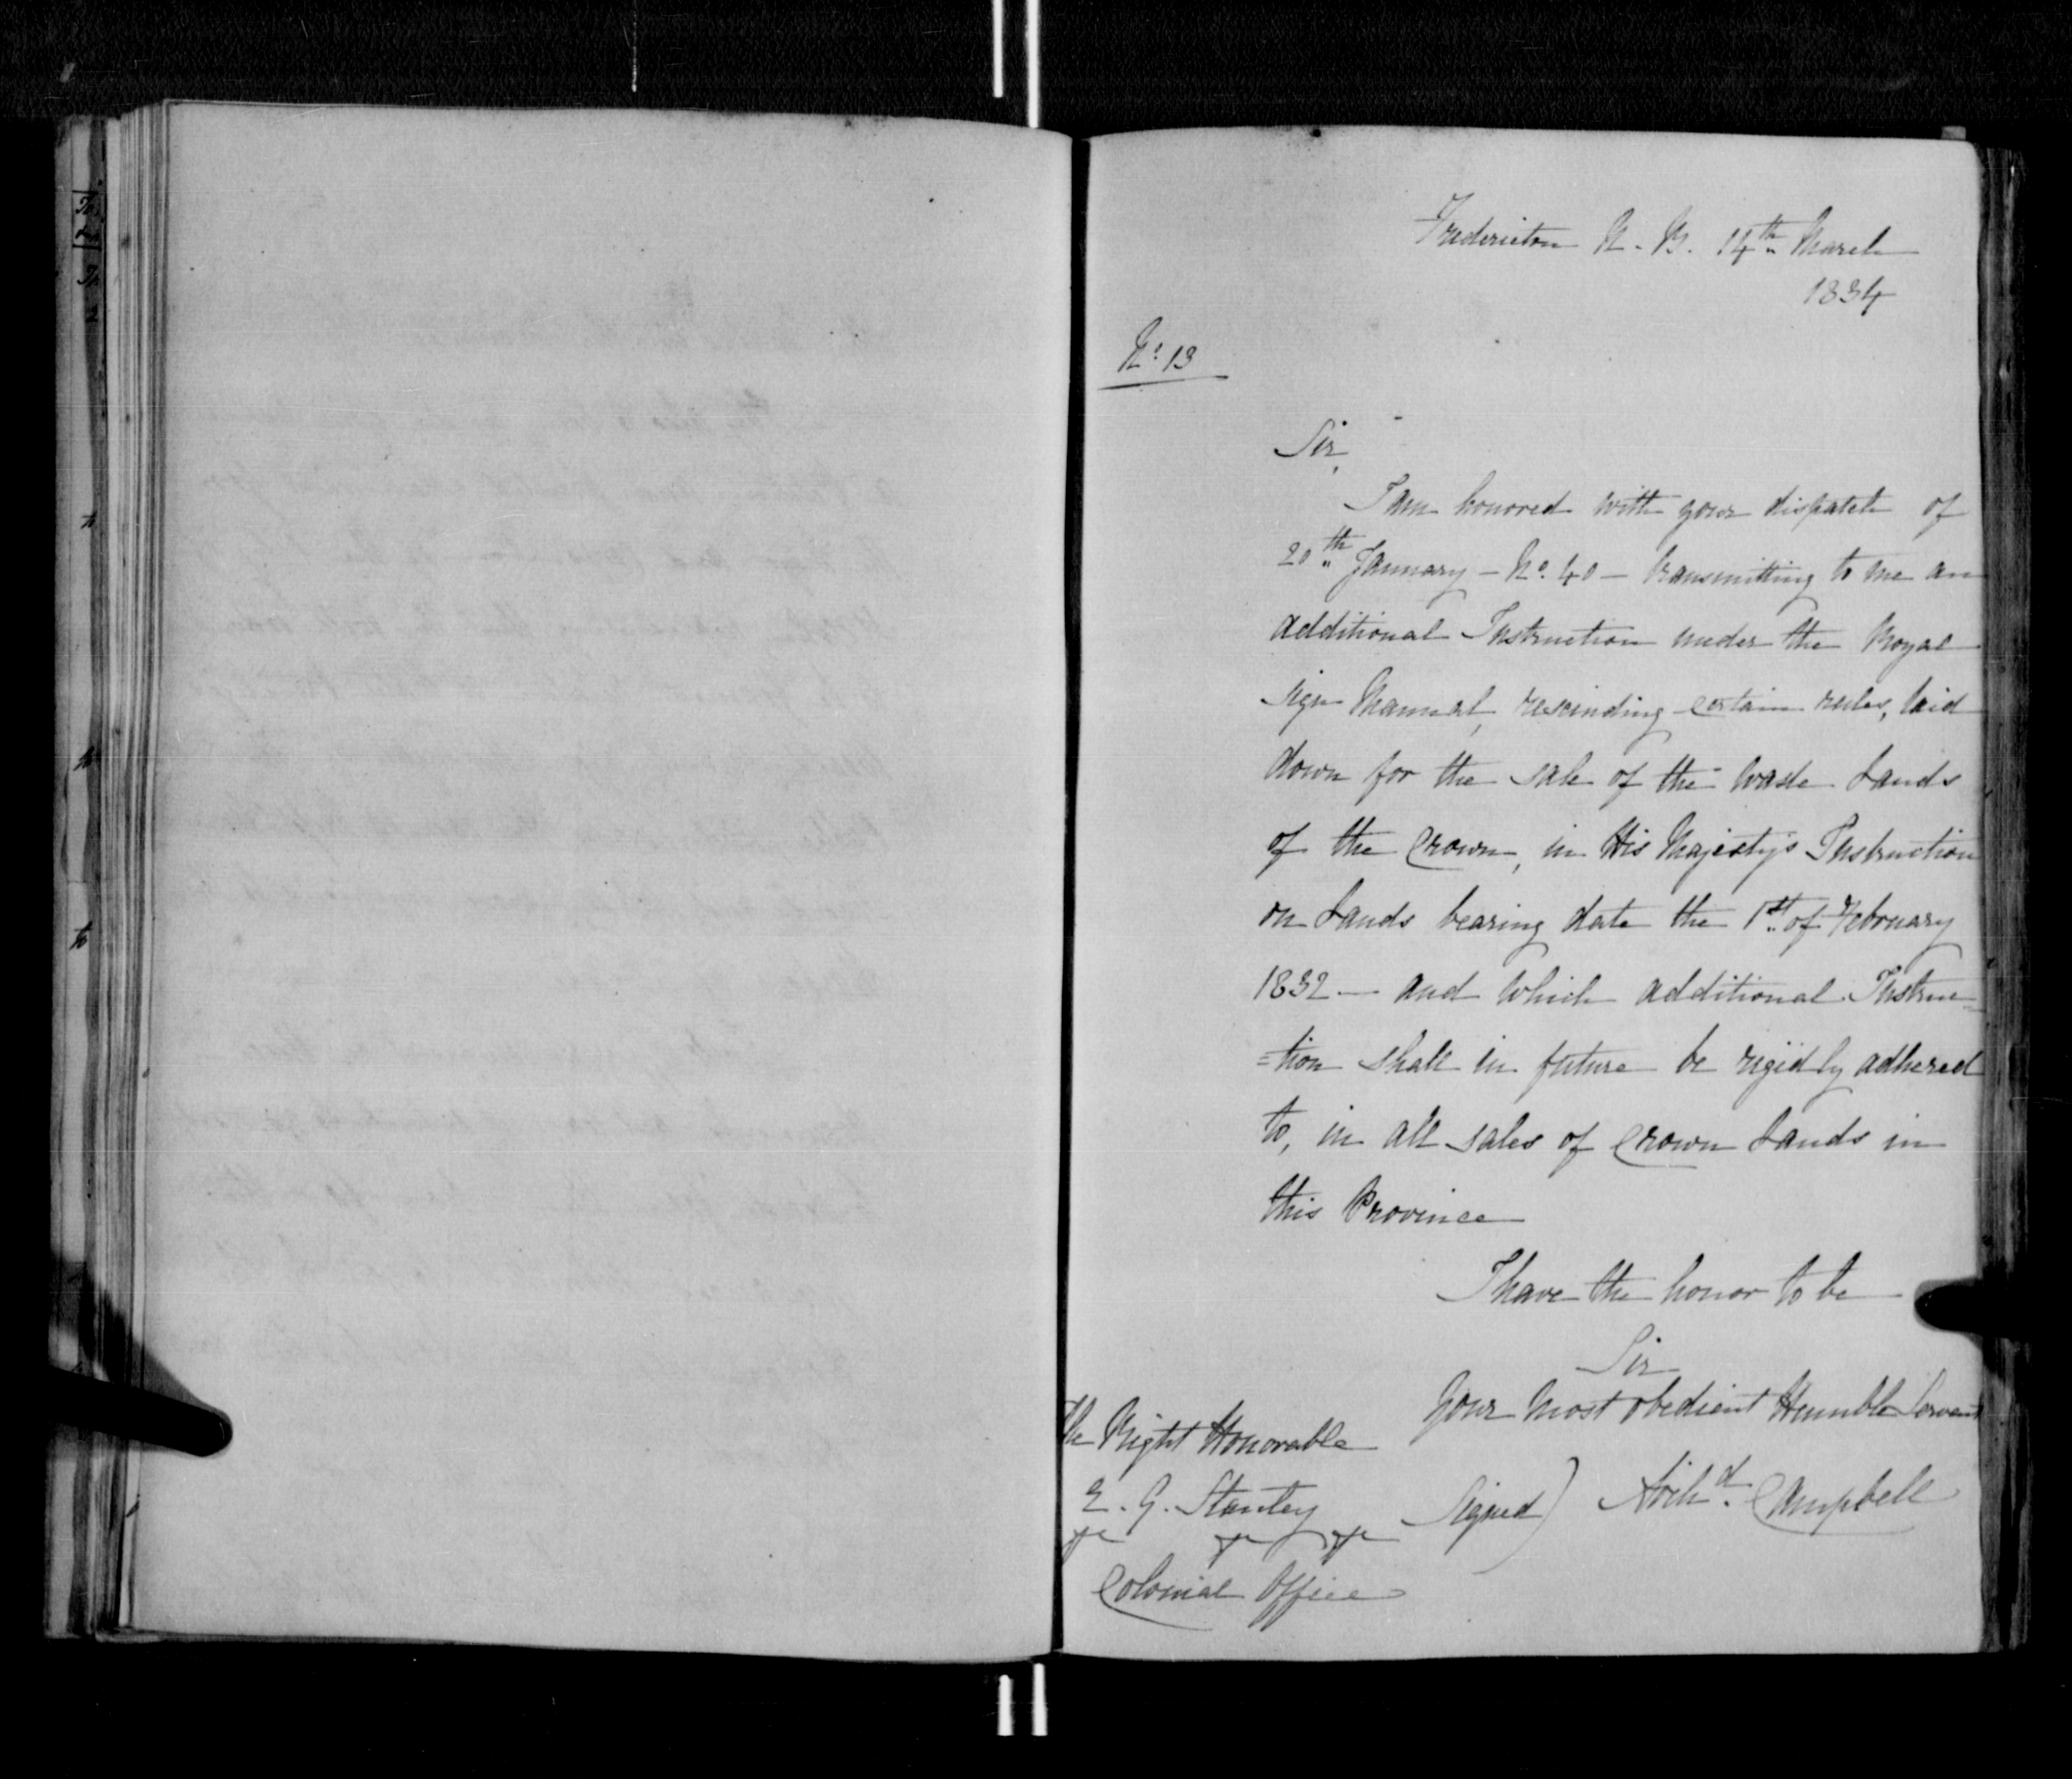 Fredericton N. B. 14th March
1834
No. 13
Sir,
I am honored with your dispatch of
20th January – No. 40 – transmitting to me an
additional Instruction under the Royal
sign Manual, rescinding certain rules, laid
down for the sale of the Waste Lands
of the Crown, in His Majesty's Instruction
on Lands bearing date the 1st of February
1832 — and which additional Instruc=
=tion shall in future be rigidly adhered
to, in all sales of Crown Lands in
this Province
I have the honor to be
Sir
Your most obedient Humble Servant
Signed) Archd. Campbell
The Right Honorable
E. G. Stanley
Colonial Office